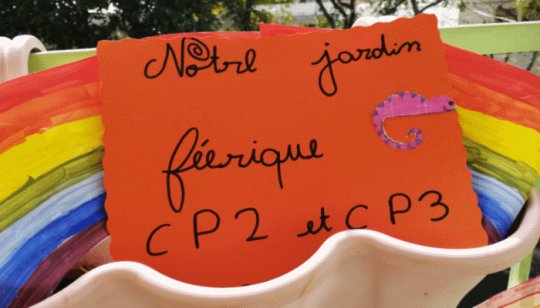 Notre jardin
féerique
CP2 et CP3